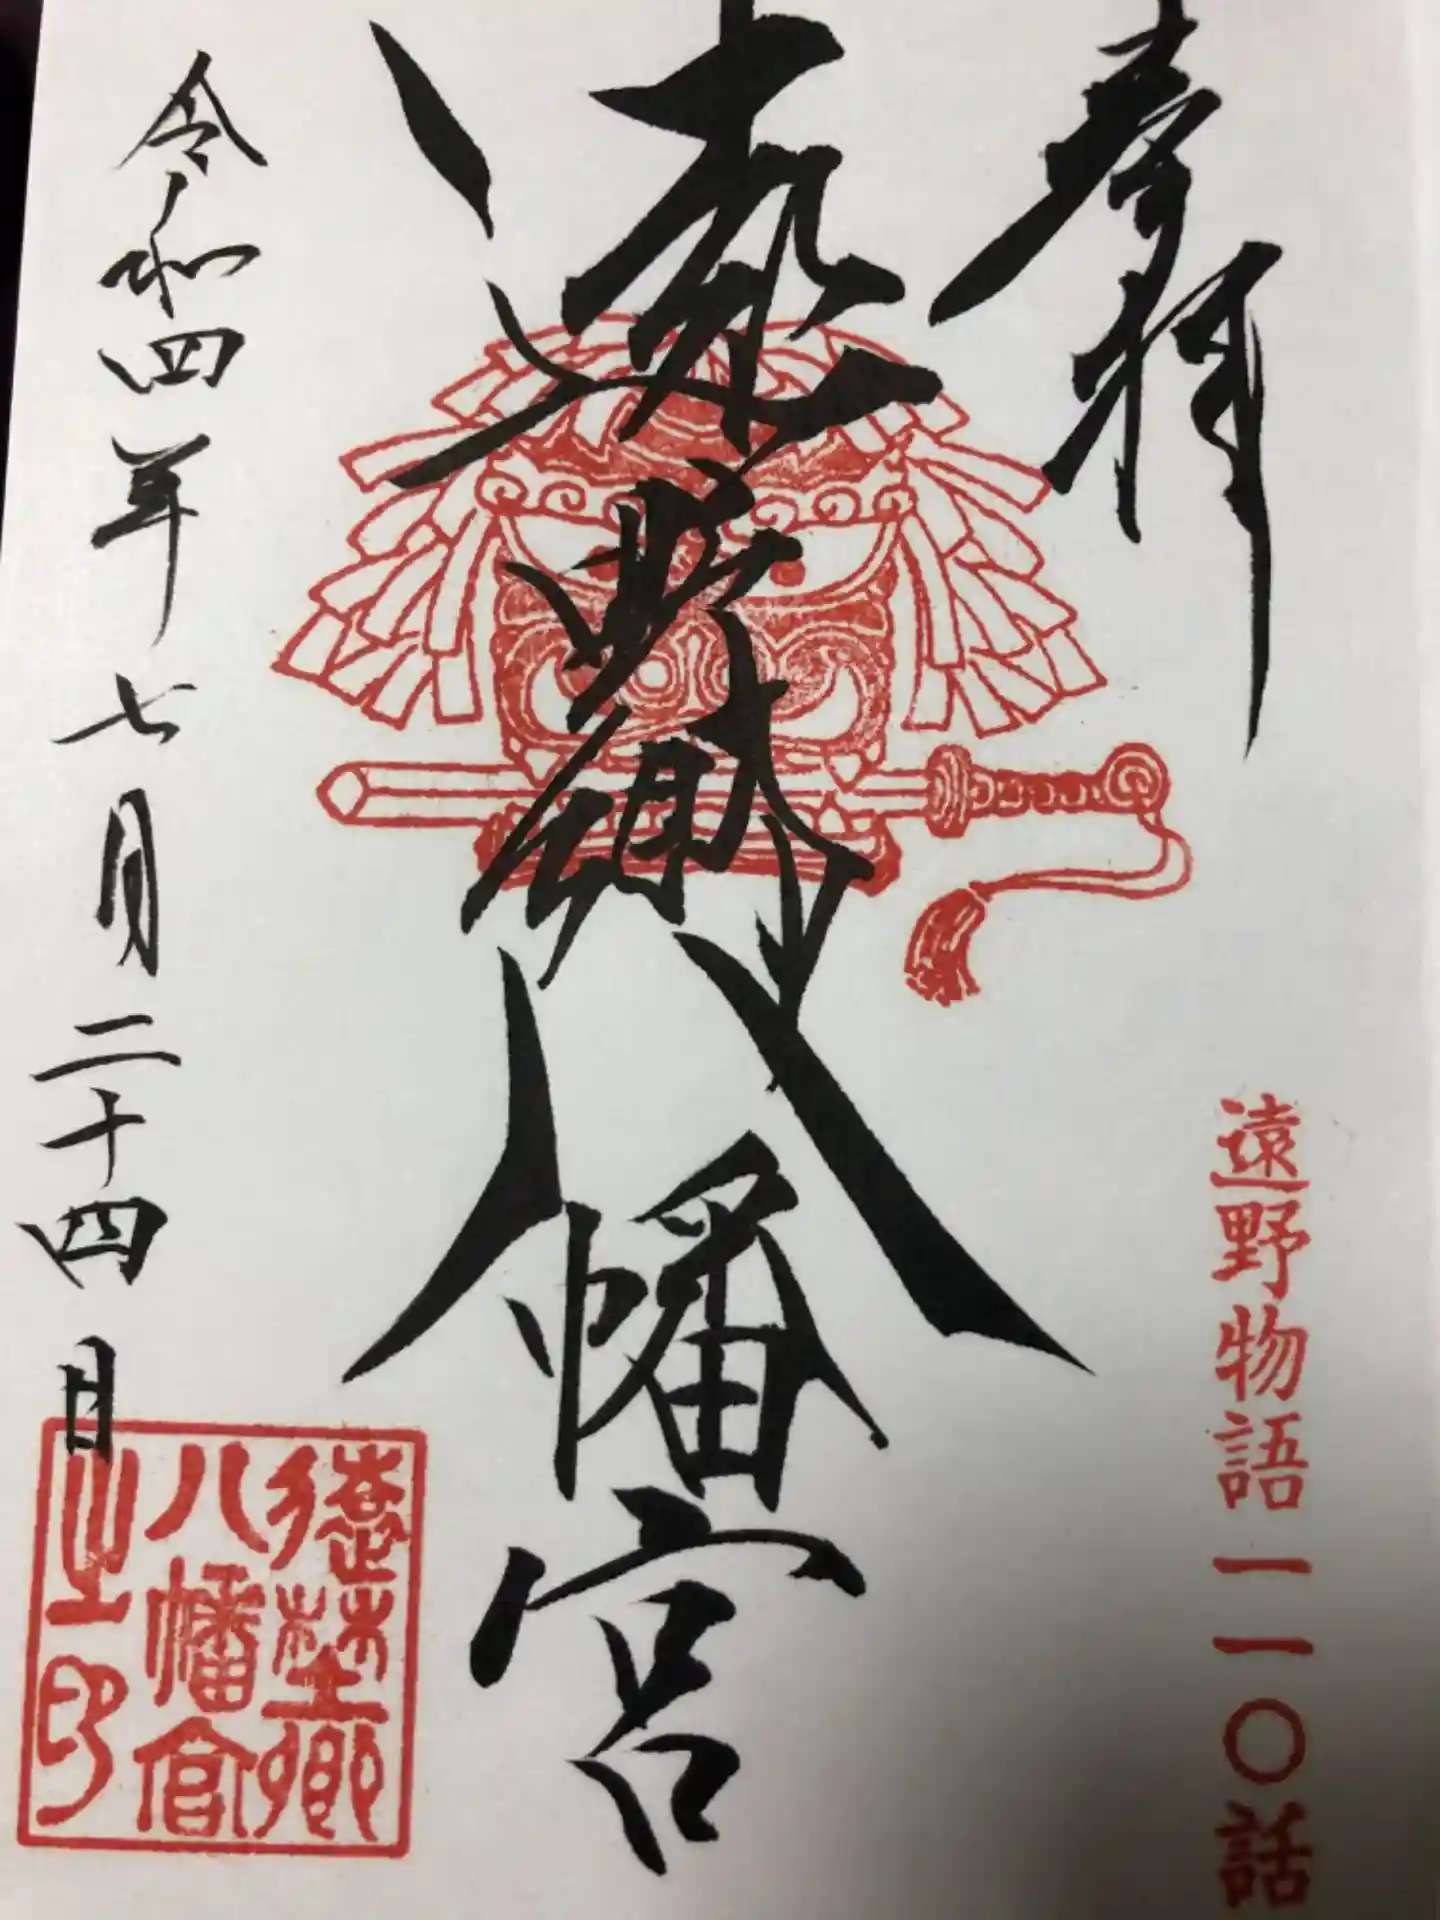 奉拝
遠野物語一一〇話
遠野郷八幡宮
令和四年七月二十四日
遠野郷
八幡宮
之印